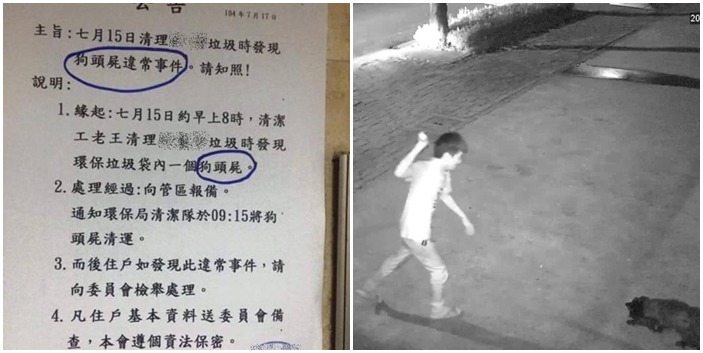 公告
104年7月17日
主旨:七月15日清理垃圾時發現
狗頭屍違常事件。請知照!
說明:
1.緣起:七月15日約早上8時,清潔
工老王清理垃圾時發現
環保垃圾袋內一個狗頭屍。
2.處理經過:向管區報備。
通知環保局清潔隊於09:15將狗
頭屍清運。
3.而後住戶如發現此違常事件,請
向委員會檢舉處理。
4.凡住戶基本資料送委員會備
查,本會遵個資法保密。
20